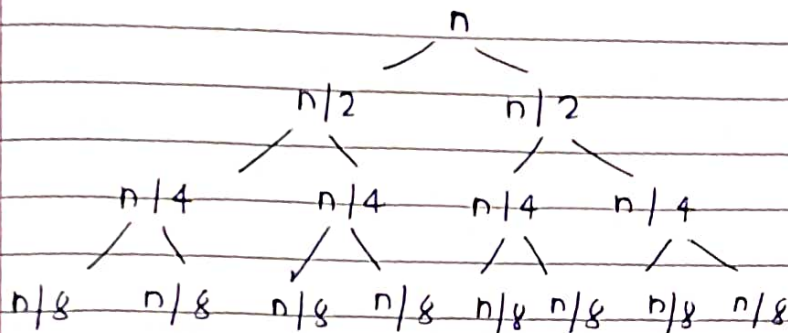 n
n/2 n/2
n/4 n/4 n/4 n/4
n/8 n/8 n/8 n/8 n/8 n/8 n/8 n/8